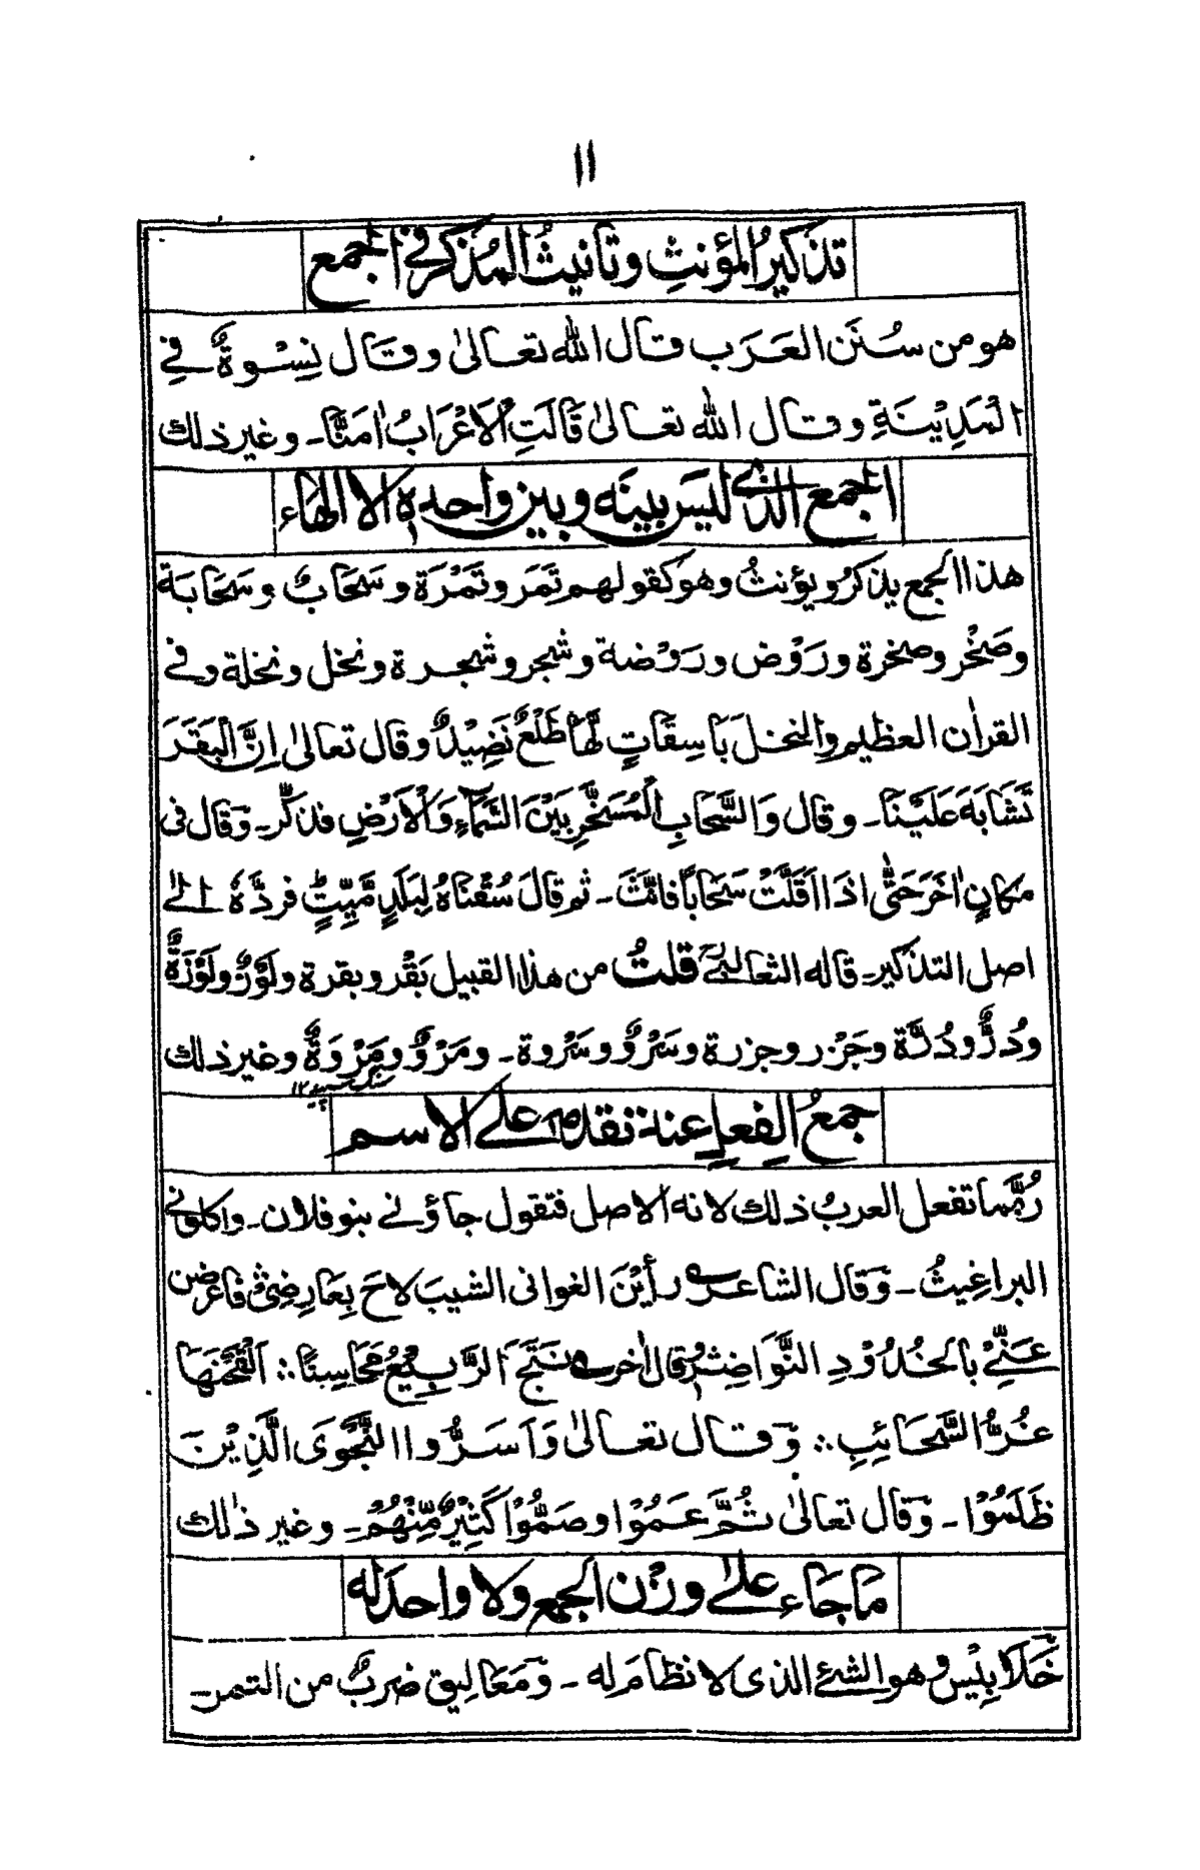 ١١
تذكيرُ المؤنثِ وتأنيثُ المُذكر في الجمع
هو من سُنَن العَرَب قال الله تعالىٰ وقَال نِسْوةٌ في
المَدِيْنَةِ وقال الله تعالىٰ قَالَتِ الْاَعْرَابُ اٰمَنَّا۔ وغير ذلك
الجمع الذى ليسَ بينَه وبين واحده الا الهاء
هذا الجمع يذكرُ ويؤنثُ وهو كقولهم تَمَر وتَمْرَة وسَحَابٌ وسَحَابَة
وصَخْر وصخرة ورَوْض ورَوْضة وشجر وشجرة ونخل ونخلة وفى
القراٰن العظيم والنخلَ بَاسِقَاتٍ لَّهَا طَلْعٌ نَضِيْدٌ وقال تعالىٰ اِنَّ الْبَقَرَ
تَشَابَهَ عَلَيْنَا۔ وقال وَالسَّحَابِ الْمُسَخَّرِ بَيْنَ السَّمَآءِ وَالْاَرْضِ فذكَّر۔ وَقال فى
مكانٍ اٰخَرَ حَتّٰى اذَا اَقَلَّتْ سَحَابًا فانَّثَ۔ ثم قالَ سُقْنَاهُ لِبَلَدٍ مَّيِّتٍ فردَّهٗ الىٰ
اصل التذكير۔ قاله الثعالبىّ قلتُ من هذا القبيل بَقْر وبقرة ولَوْزٌ ولَوْزَةٌ
ودُرٌّ ودُرَّة وجَزْر وجزرة وسَرْوٌ وسَرْوة۔ ومَرْوٌ ومَرْوَةٌ وغير ذلك
سنگ سپید ١٢
جمعُ الفِعلِ عند تقدمه على الاسم
رُبَّما تفعل العربُ ذلك لانه الاصل فتقول جاؤنى بنو فلان۔ واكلونى
البراغيثُ۔ وَقال الشاعر رأيْنَ الغوانى الشيبَ لاحَ بِعَارِضِىْ فاعرضن
عَنِّىْ بالخُدُوْدِ النَّوَاضِرِ وقال اٰخر نَتَجَ الرَّبِيْعُ مَحَاسِنًا :: اَلْقَحْنَهَا
غُرُّ السَّحَائِبِ :: وَقال تعالىٰ وَاَسَرُّوا النَّجْوَى الَّذِيْنَ
ظَلَمُوْا۔ وَقال تعالىٰ ثُمَّ عَمُوْا وصَمُّوْا كَثِيْرٌ مِّنْهُمْ۔ وغير ذٰلك
مَا جَاءَ علىٰ وزْن الجمع ولا واحدَ له
خَلَابِيْسُ وهو الشئ الذى لا نظامَ له۔ وَمَعَاليق ضربٌ من التمر۔